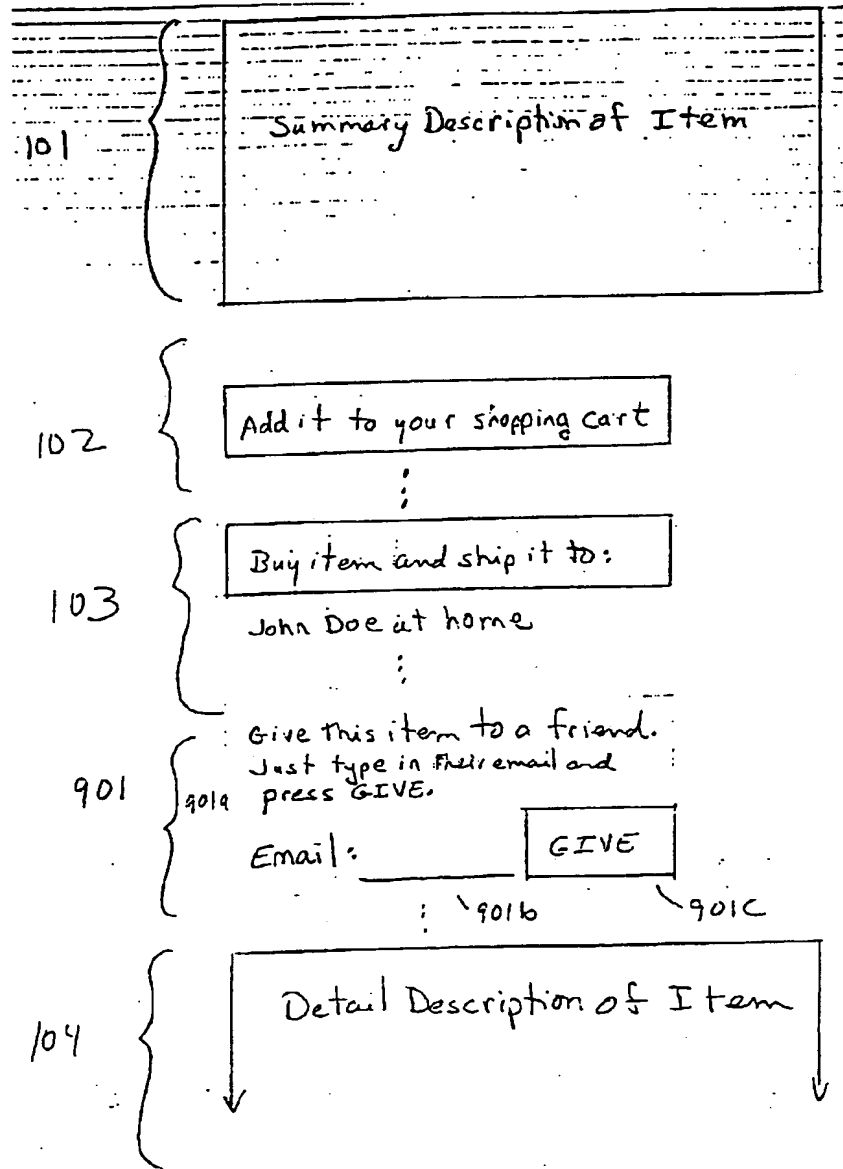 101
Summary Description of Item
102
Add it to your shopping cart
103
Buy item and ship it to:
John Doe at home
901
901a
Give this item to a friend.
Just type in their email and
press GIVE.
Email:
GIVE
901b
901c
104
Detail Description of Item